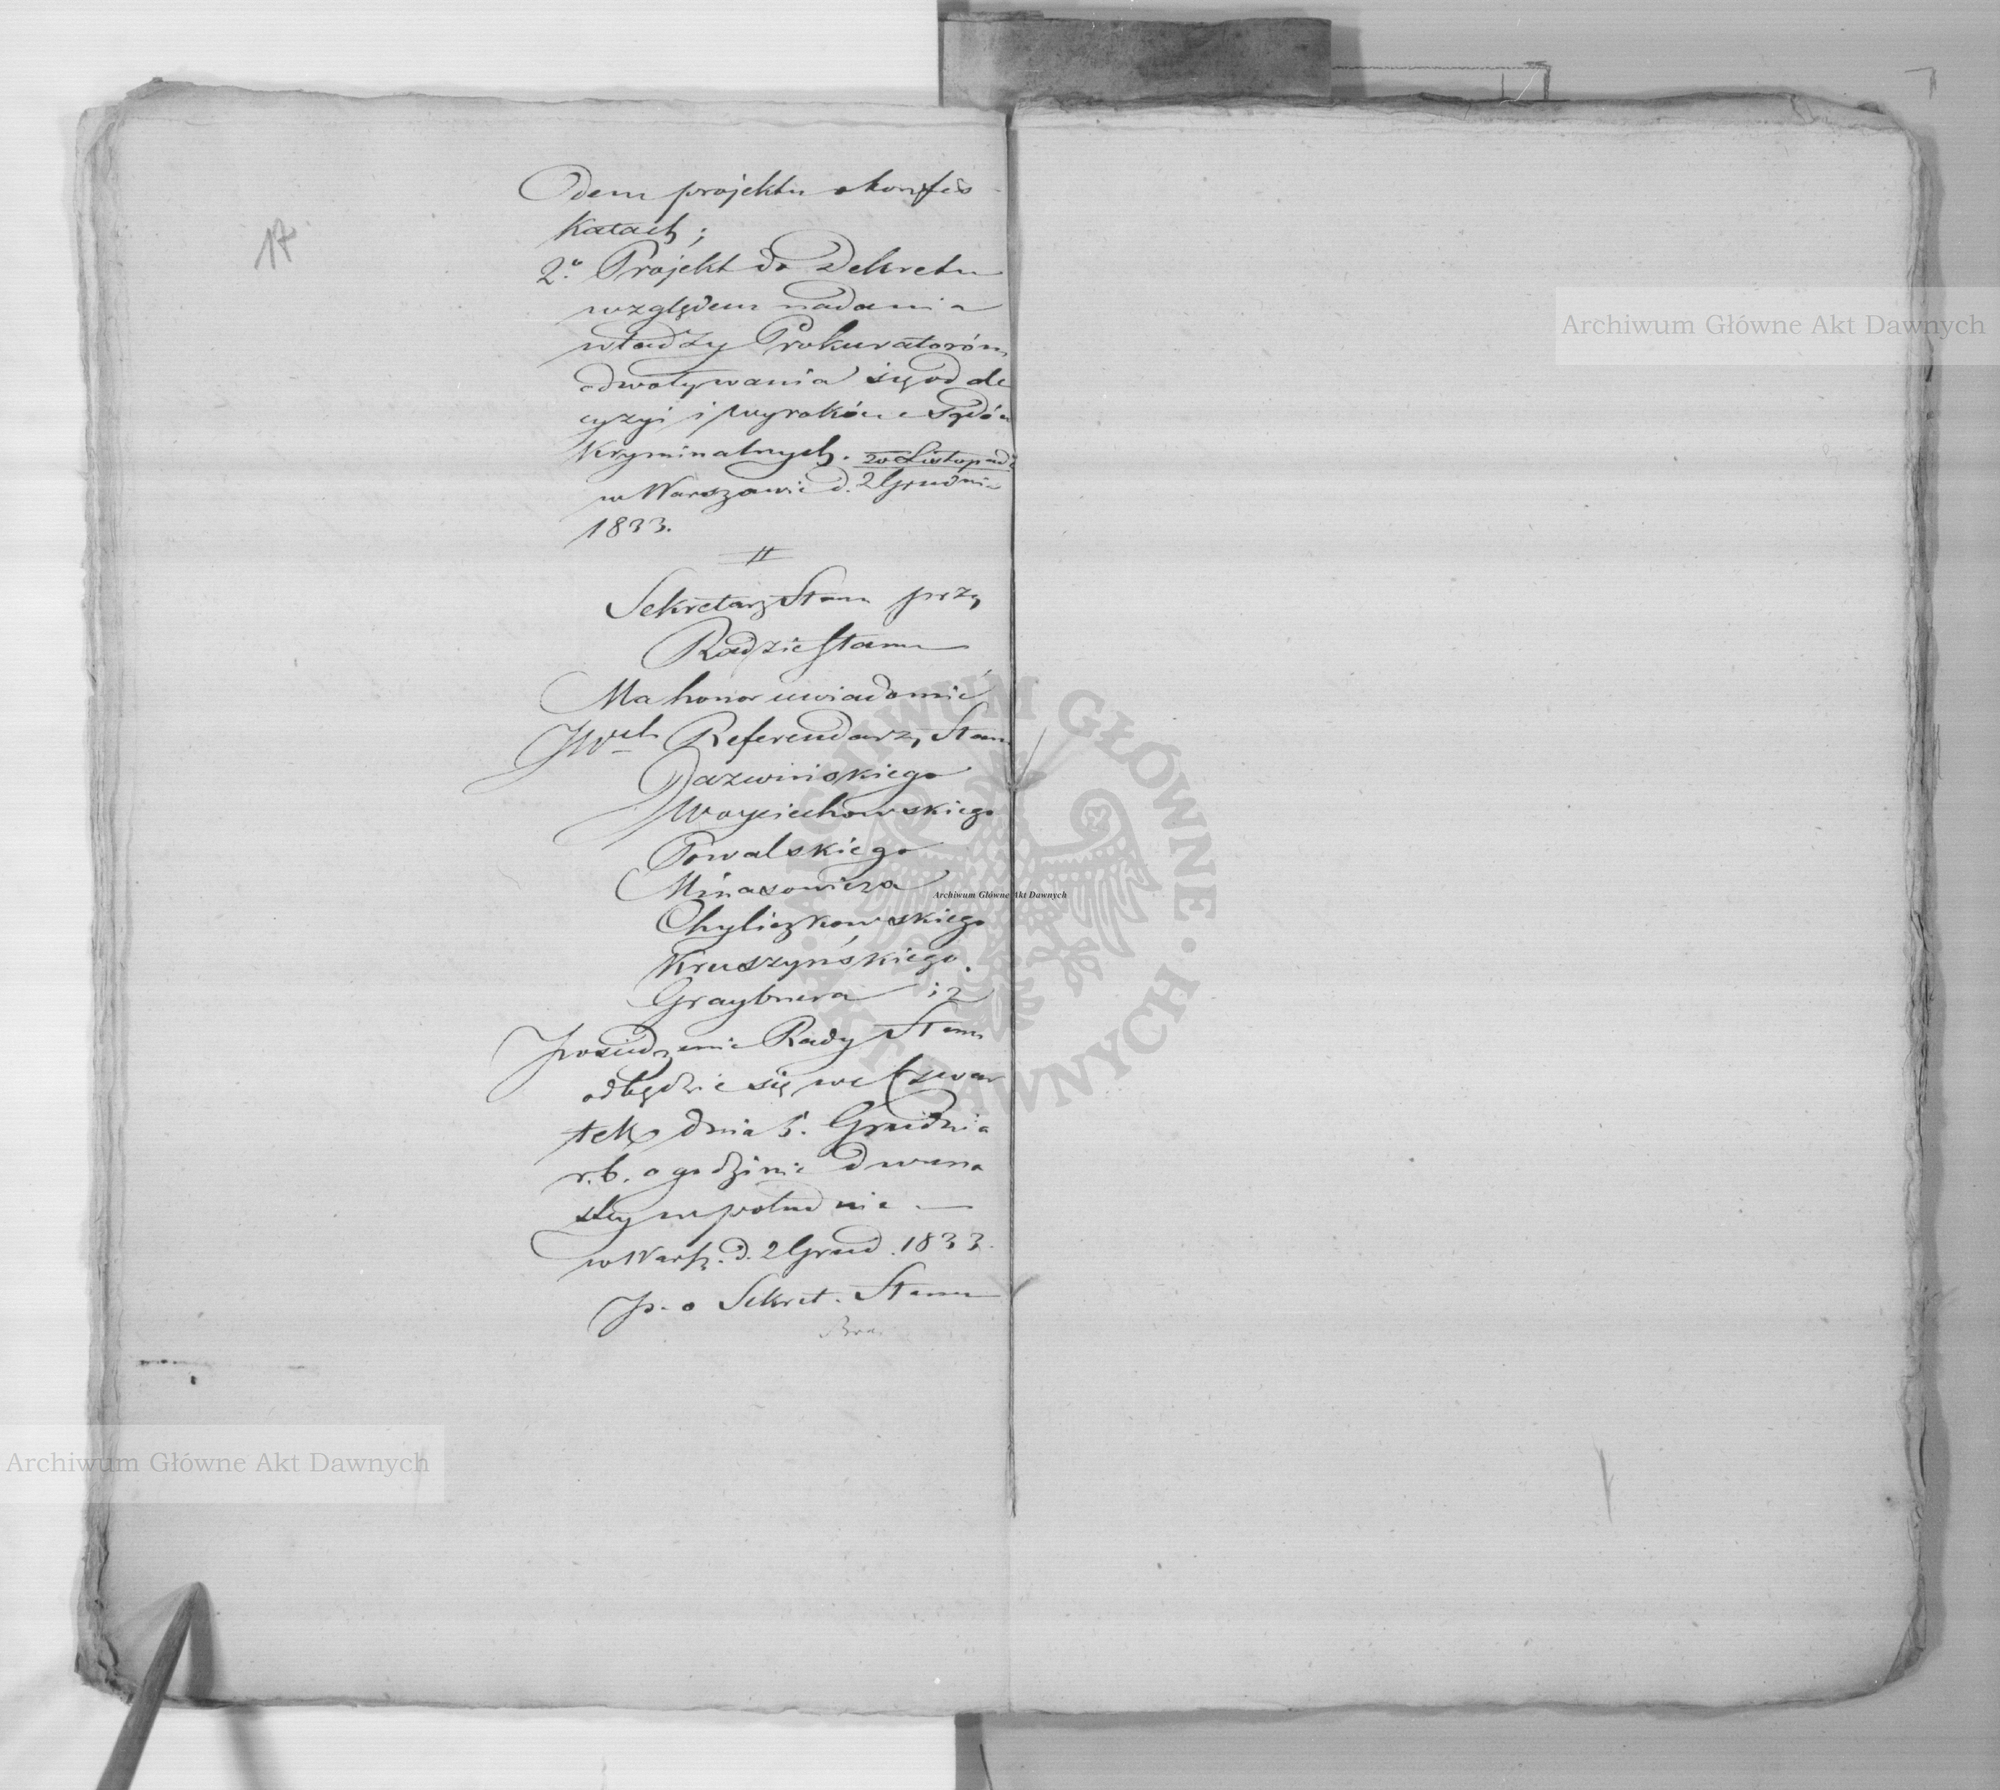 17
Odem projektu o konfis-
katach;
2.o Projekt do Dekretu
względem nadania
władzy Prokuratoróm
odwoływania się od de
cyzyi i wyroków Sądów
Kryminalnych. 20 Listopada
w Warszawie d. 2 Grudnia
1833.
Sekretarz Stanu przy
Radzie Stanu
Ma honor uwiadomić
JWch Referendarzy Stanu
Wojciechowskiego
Powalskiego
Minasowicza
Chyliczkowskiego
Kruszyńskiego
Graybnera iż
posiedzenie Rady Stanu
odbędzie się we Czwar
tek dnia 5. Grudnia
r.b. o godzinie dwuna
stej w południe —
w Warsz. d. 2 Grud. 1833.
p. o Sekret. Stanu
Archiwum Główne Akt Dawnych
Archiwum Główne Akt Dawnych
Archiwum Główne Akt Dawnych
ARCHIWUM GŁÓWNE · AKT DAWNYCH ·